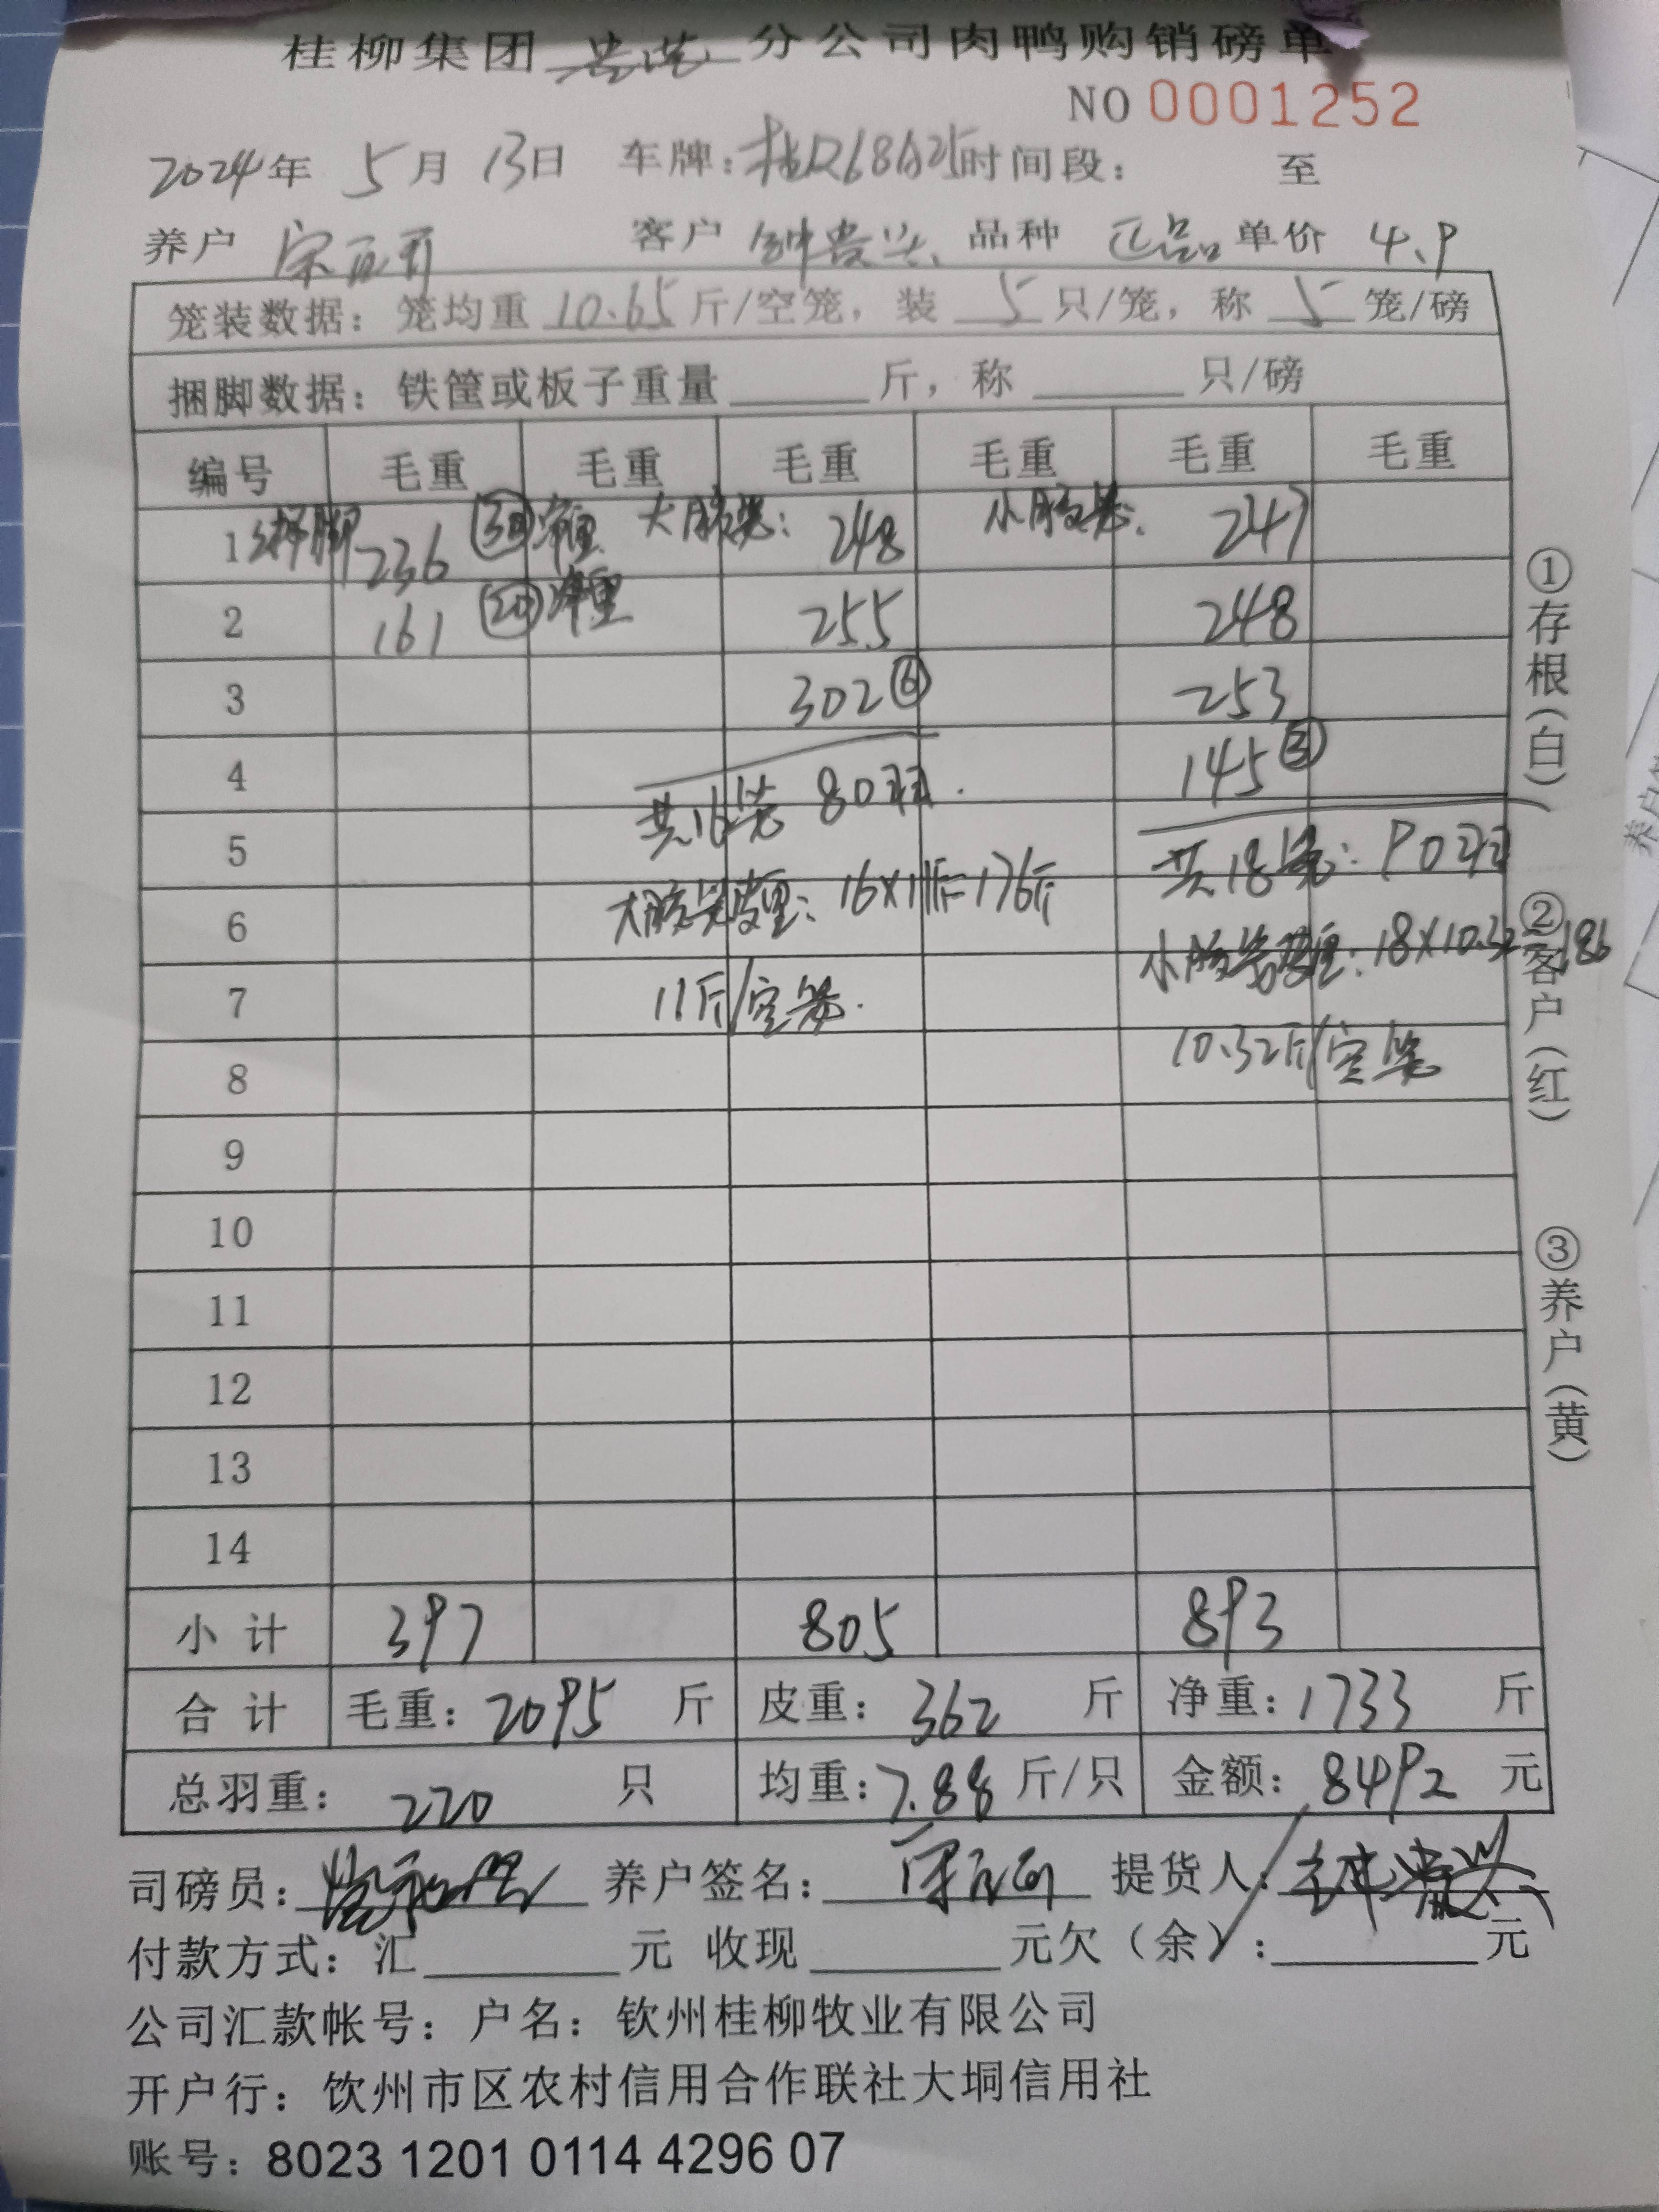 桂柳集团 贵港 分公司肉鸭购销磅单
NO 0001252
2024年 5月 13日 车牌：桂 时间段： 至
养户 宋 客户 钟贵兴 品种 正品 单价 4.9
笼装数据：笼均重 10.65 斤/空笼，装 5 只/笼，称 5 笼/磅
捆脚数据：铁筐或板子重量 斤，称 只/磅
编号 毛重 毛重 毛重 毛重 毛重 毛重
1 绑脚 236 (30) 净重 大胶笼： 248 小胶笼： 247
2 161 (20) 净重 255 248
3 302 (6) 253
4 145 (3)
共16笼 80羽.
5 共18笼：90羽
6 大胶笼皮重：16×11斤=176斤
小胶笼皮重：18×10.32 186
7 11斤/空笼.
8 10.32斤/空笼
9
10
11
12
13
14
小计 397 805 893
合计 毛重：2095 斤 皮重：362 斤 净重：1733 斤
总羽重：220 只 均重：7.88 斤/只 金额：8492 元
司磅员： 养户签名： 提货人：钟贵兴
付款方式：汇 元 收现 元欠（余）： 元
公司汇款帐号：户名：钦州桂柳牧业有限公司
开户行：饮州市区农村信用合作联社大垌信用社
账号：8023 1201 0114 4296 07
①存根（白）
②客户（红）
③养户（黄）